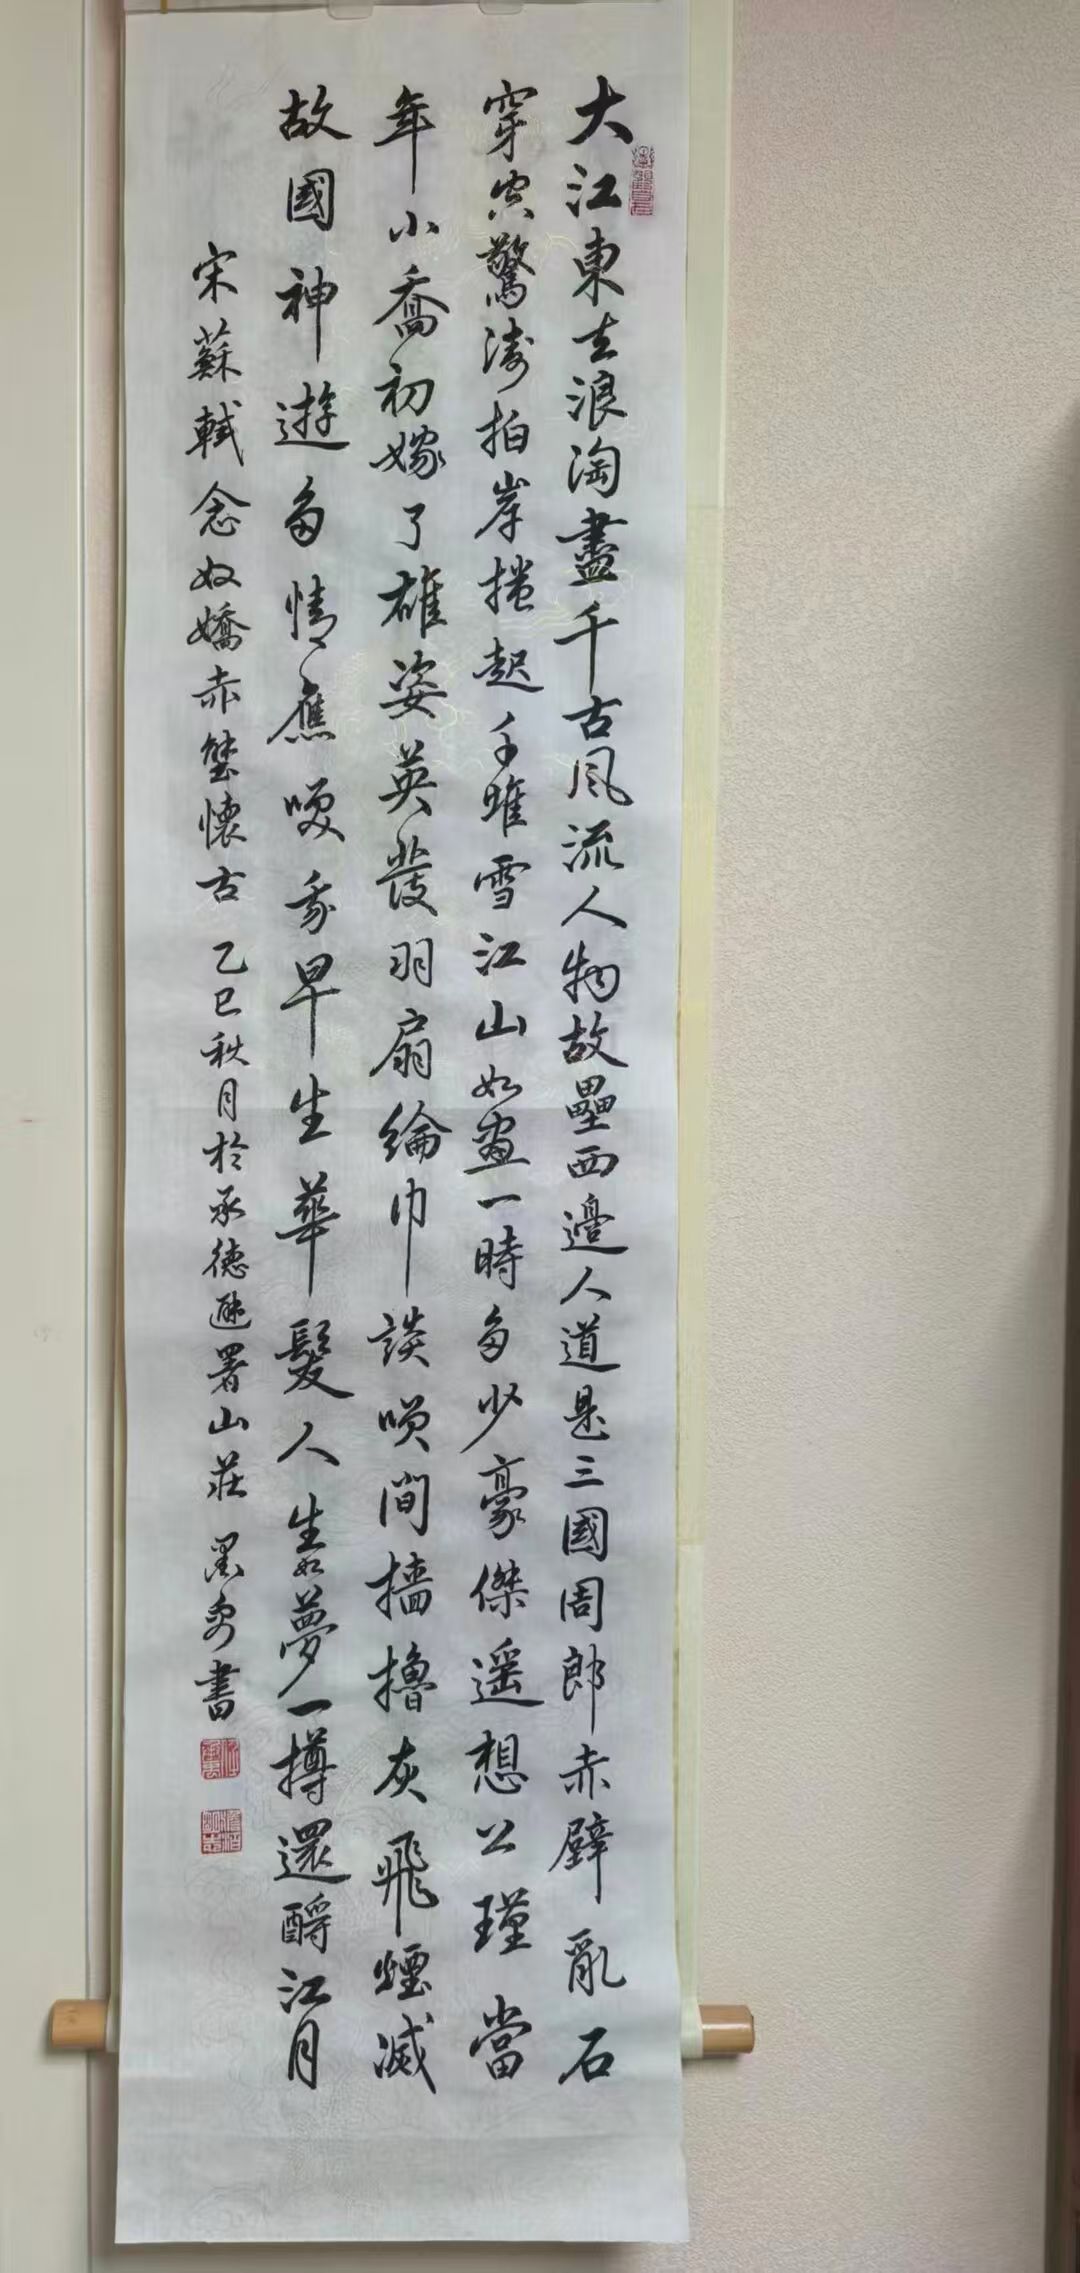 大江東去浪淘盡千古風流人物故壘西邊人道是三國周郎赤壁亂石
穿空驚濤拍岸捲起千堆雪江山如畫一時多少豪傑遥想公瑾當
年小喬初嫁了雄姿英發羽扇綸巾談笑間檣擼灰飛煙滅
故國神遊多情應笑我早生華髮人生如夢一撙還酹江月
宋蘇軾念奴嬌赤壁懷古 乙巳秋月於承德避暑山莊 書